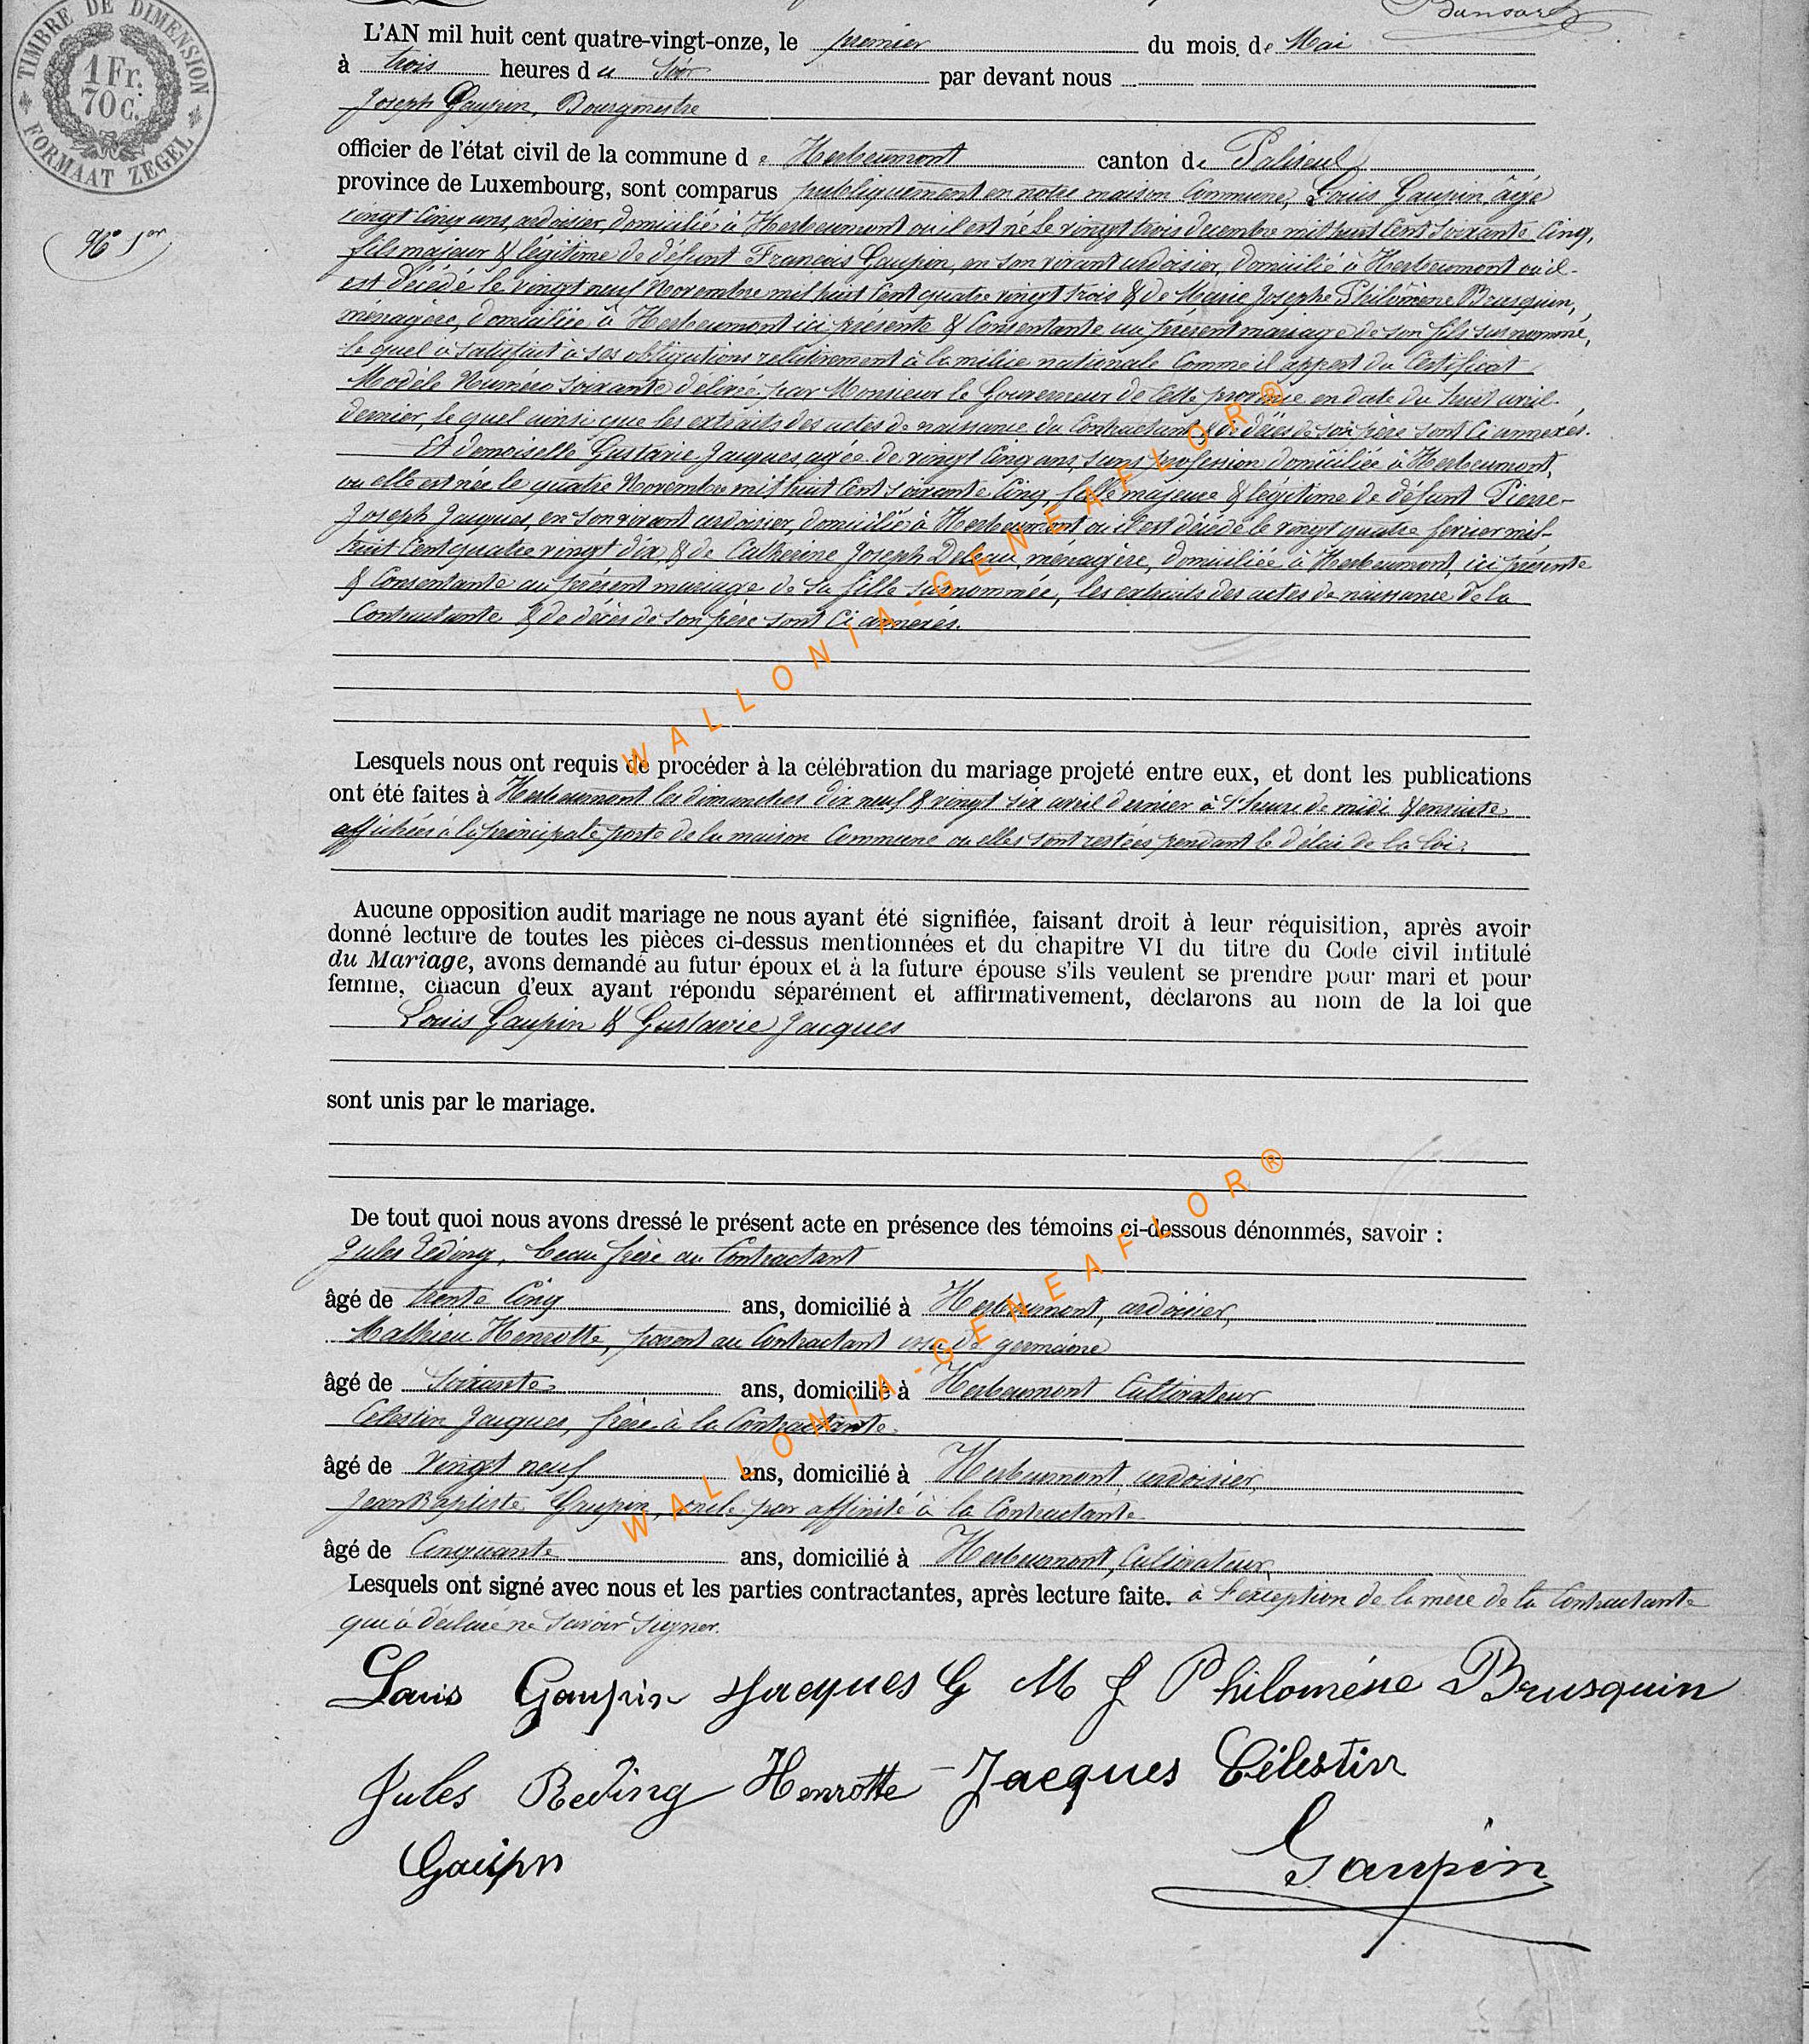 TIMBRE DE DIMENSION
1 Fr.
70 C.
FORMAAT ZEGEL
Bansard
L'AN mil huit cent quatre-vingt-onze, le premier du mois de Mai
à trois heures du Soir par devant nous
Joseph Gaupin, Bourgmestre
officier de l'état civil de la commune de Herbeumont canton de Paliseul
province de Luxembourg, sont comparus publiquement en notre maison Commune, Louis Gaupin, âgé
vingt Cinq ans, ardoisier, domicilié à Herbeumont ou il est né le vingt trois decembre mil huit Cent Soixante Cinq,
N° 1er
fils majeur & légitime de défunt Francois Gaupin, en son vivant ardoisier, domicilié à Herbeumont ou il
est décédé le vingt neuf Novembre mil huit Cent quatre vingt trois & de Marie Josephe Philomène Brusquin,
ménagère, domiciliée à Herbeumont ici présente & Consentante au présent mariage de son fils susnommé,
le quel à satisfait à ses obligations relativement à la milice nationale Comme il appert du Certificat
Modèle Numéro soixante délivré par Monsieur le Gouverneur de Cette province en date du huit avril
dernier, le quel ainsi que les extraits des actes de naissance du Contractant & de décès de son père sont Ci annexés.
Et demoiselle Gustavie Jacques, agée de vingt Cinq ans, sans profession domiciliée à Herbeumont,
ou elle est née le quatre Novembre mil huit Cent soixante Cinq, fille majeure & légitime de défunt Pierre-
Joseph Jacques, en son vivant ardoisier, domicilié à Herbeumont ou il est décédé le vingt quatre fevrier mil-
huit Cent quatre vingt dix, & de Catherine Joseph Deleau, ménagère, domiciliée à Herbeumont, ici présente
& Consentante au présent mariage de sa fille susnommée, les extraits des actes de naissance de la
Contractante & de décès de son père sont Ci annexés.
WALLONIA-GENEAFLOR®
Lesquels nous ont requis de procéder à la célébration du mariage projeté entre eux, et dont les publications
ont été faites à Herbeumont les dimanches dix neuf & vingt six avril dernier à l'heure de midi & ensuite
affichées à la principale porte de la maison Commune ou elles sont restées pendant le délai de la loi.
Aucune opposition audit mariage ne nous ayant été signifiée, faisant droit à leur réquisition, après avoir
donné lecture de toutes les pièces ci-dessus mentionnées et du chapitre VI du titre du Code civil intitulé
du Mariage, avons demandé au futur époux et à la future épouse s'ils veulent se prendre pour mari et pour
femme, chacun d'eux ayant répondu séparément et affirmativement, déclarons au nom de la loi que
Louis Gaupin & Gustavie Jacques
sont unis par le mariage.
De tout quoi nous avons dressé le présent acte en présence des témoins ci-dessous dénommés, savoir :
Jules Reding, beau frère au Contractant
âgé de trente Cinq ans, domicilié à Herbeumont, ardoisier,
Mathieu Henrotte, parent au Contractant germaine
âgé de Soixante ans, domicilié à Herbeumont Cultivateur
Célestin Jacques, frère à la Contractante
âgé de Vingt neuf ans, domicilié à Herbeumont, ardoisier,
Jean Baptiste Gaupin, oncle par affinité à la Contractante
WALLONIA-GENEAFLOR®
âgé de Cinquante ans, domicilié à Herbeumont, Cultivateur
Lesquels ont signé avec nous et les parties contractantes, après lecture faite. à l'exception de la mère de la Contractante
qui à déclaré ne savoir signer.
Louis Gaupin Jacques G M J Philoméne Brusquin
Jules Reding Henrotte Jacques Célestin
Gaupin Gaupin